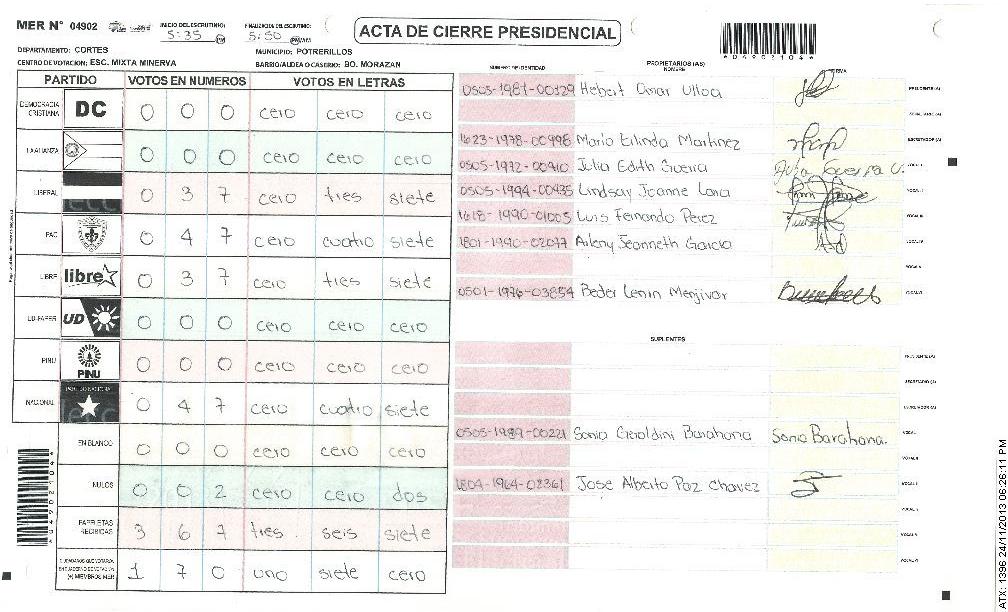 MER N° 04902
INICIO DEL ESCRUTINIO: 5:35 PM
FINALIZACIÓN DEL ESCRUTINIO: 5:50 PM
ACTA DE CIERRE PRESIDENCIAL
*04902104*
DEPARTAMENTO: CORTES
MUNICIPIO: POTRERILLOS
CENTRO DE VOTACION: ESC. MIXTA MINERVA
BARRIO/ALDEA O CASERIO: BO. MORAZAN
PARTIDO VOTOS EN NUMEROS VOTOS EN LETRAS
DEMOCRACIA CRISTIANA DC 0 0 0 cero cero cero
LA ALIANZA 0 0 0 cero cero cero
LIBERAL 0 3 7 cero tres siete
PAC 0 4 7 cero cuatro siete
LIBRE libre 0 3 7 cero tres siete
UD-FAPER UD 0 0 0 cero cero cero
PINU PINU 0 0 0 cero cero cero
NACIONAL PARTIDO NACIONAL 0 4 7 cero cuatro siete
EN BLANCO 0 0 0 cero cero cero
NULOS 0 0 2 cero cero dos
PAPELETAS RECIBIDAS 3 6 7 tres seis siete
CIUDADANOS QUE VOTARON
(+) MIEMBROS MER 1 7 0 uno siete cero
*04902104*
NUMERO DE IDENTIDAD
PROPIETARIOS (AS)
NOMBRE
FIRMA
0505-1981-00329 Hebert Omar Ulloa PRESIDENTE (A)
SECRETARIO (A)
1623-1978-00998 Mario Erlinda Martinez ESCRUTADOR (A)
0505-1972-00910 Julia Edith Guerra Julia Guerra U. VOCAL I
0505-1994-00435 Lindsay Joanne Lara VOCAL II
1618-1990-01005 Luis Fernando Perez VOCAL III
1801-1990-02077 Arleny Jeanneth Garcia VOCAL IV
VOCAL V
0501-1976-03854 Beder Lenin Menjivar VOCAL VI
SUPLENTES
PRESIDENTE (A)
SECRETARIO (A)
ESCRUTADOR (A)
0505-1989-00221 Sonia Geraldini Barahona Sonia Barahona. VOCAL I
VOCAL II
1804-1964-02361 Jose Alberto Paz Chavez VOCAL III
VOCAL IV
VOCAL V
VOCAL VI
ATX: 1396 24/11/2013 06:26:11 PM